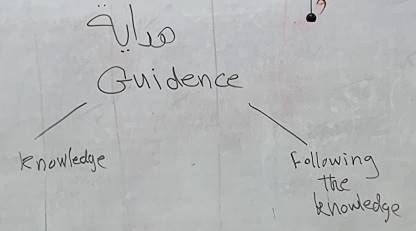 هداية
Guidence
knowledge
Following
the
knowledge